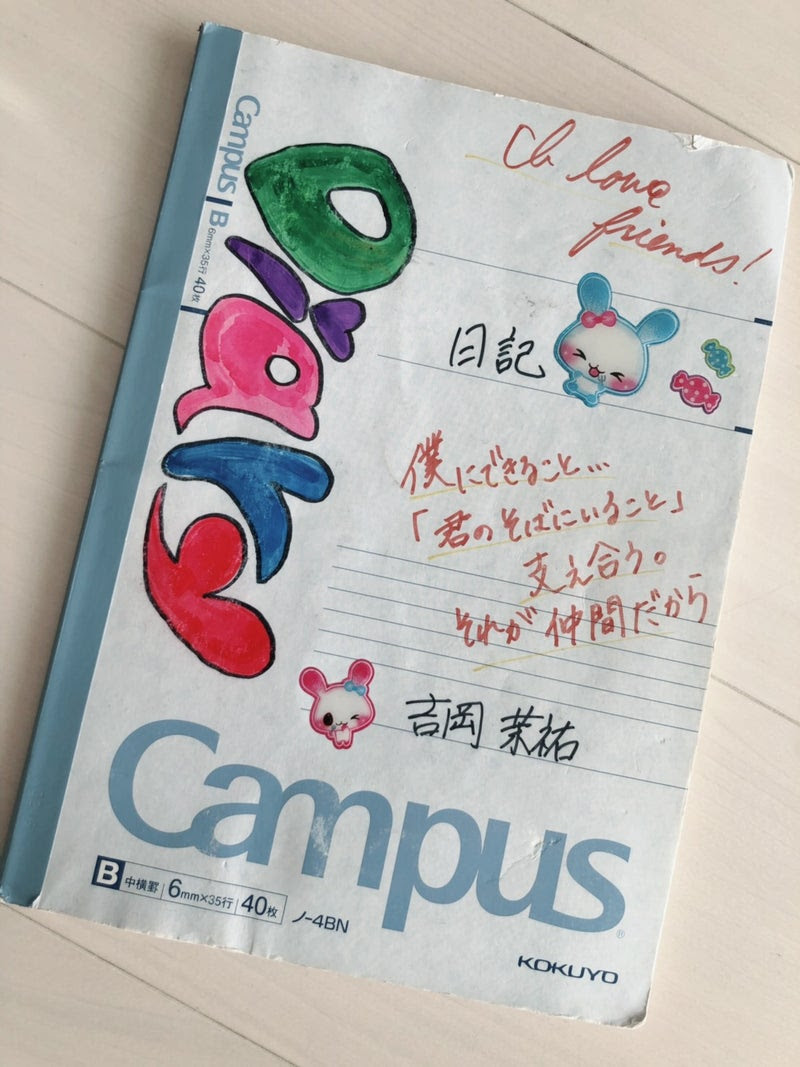 Campus B 6mm×35行 40枚
Diary
love
friends!
日記
僕にできること…
「君のそばにいること」
支え合う。
それが仲間だから
吉岡 茉祐
Campus®
B 中横罫 6mm×35行 40枚 ノ-4BN
KOKUYO